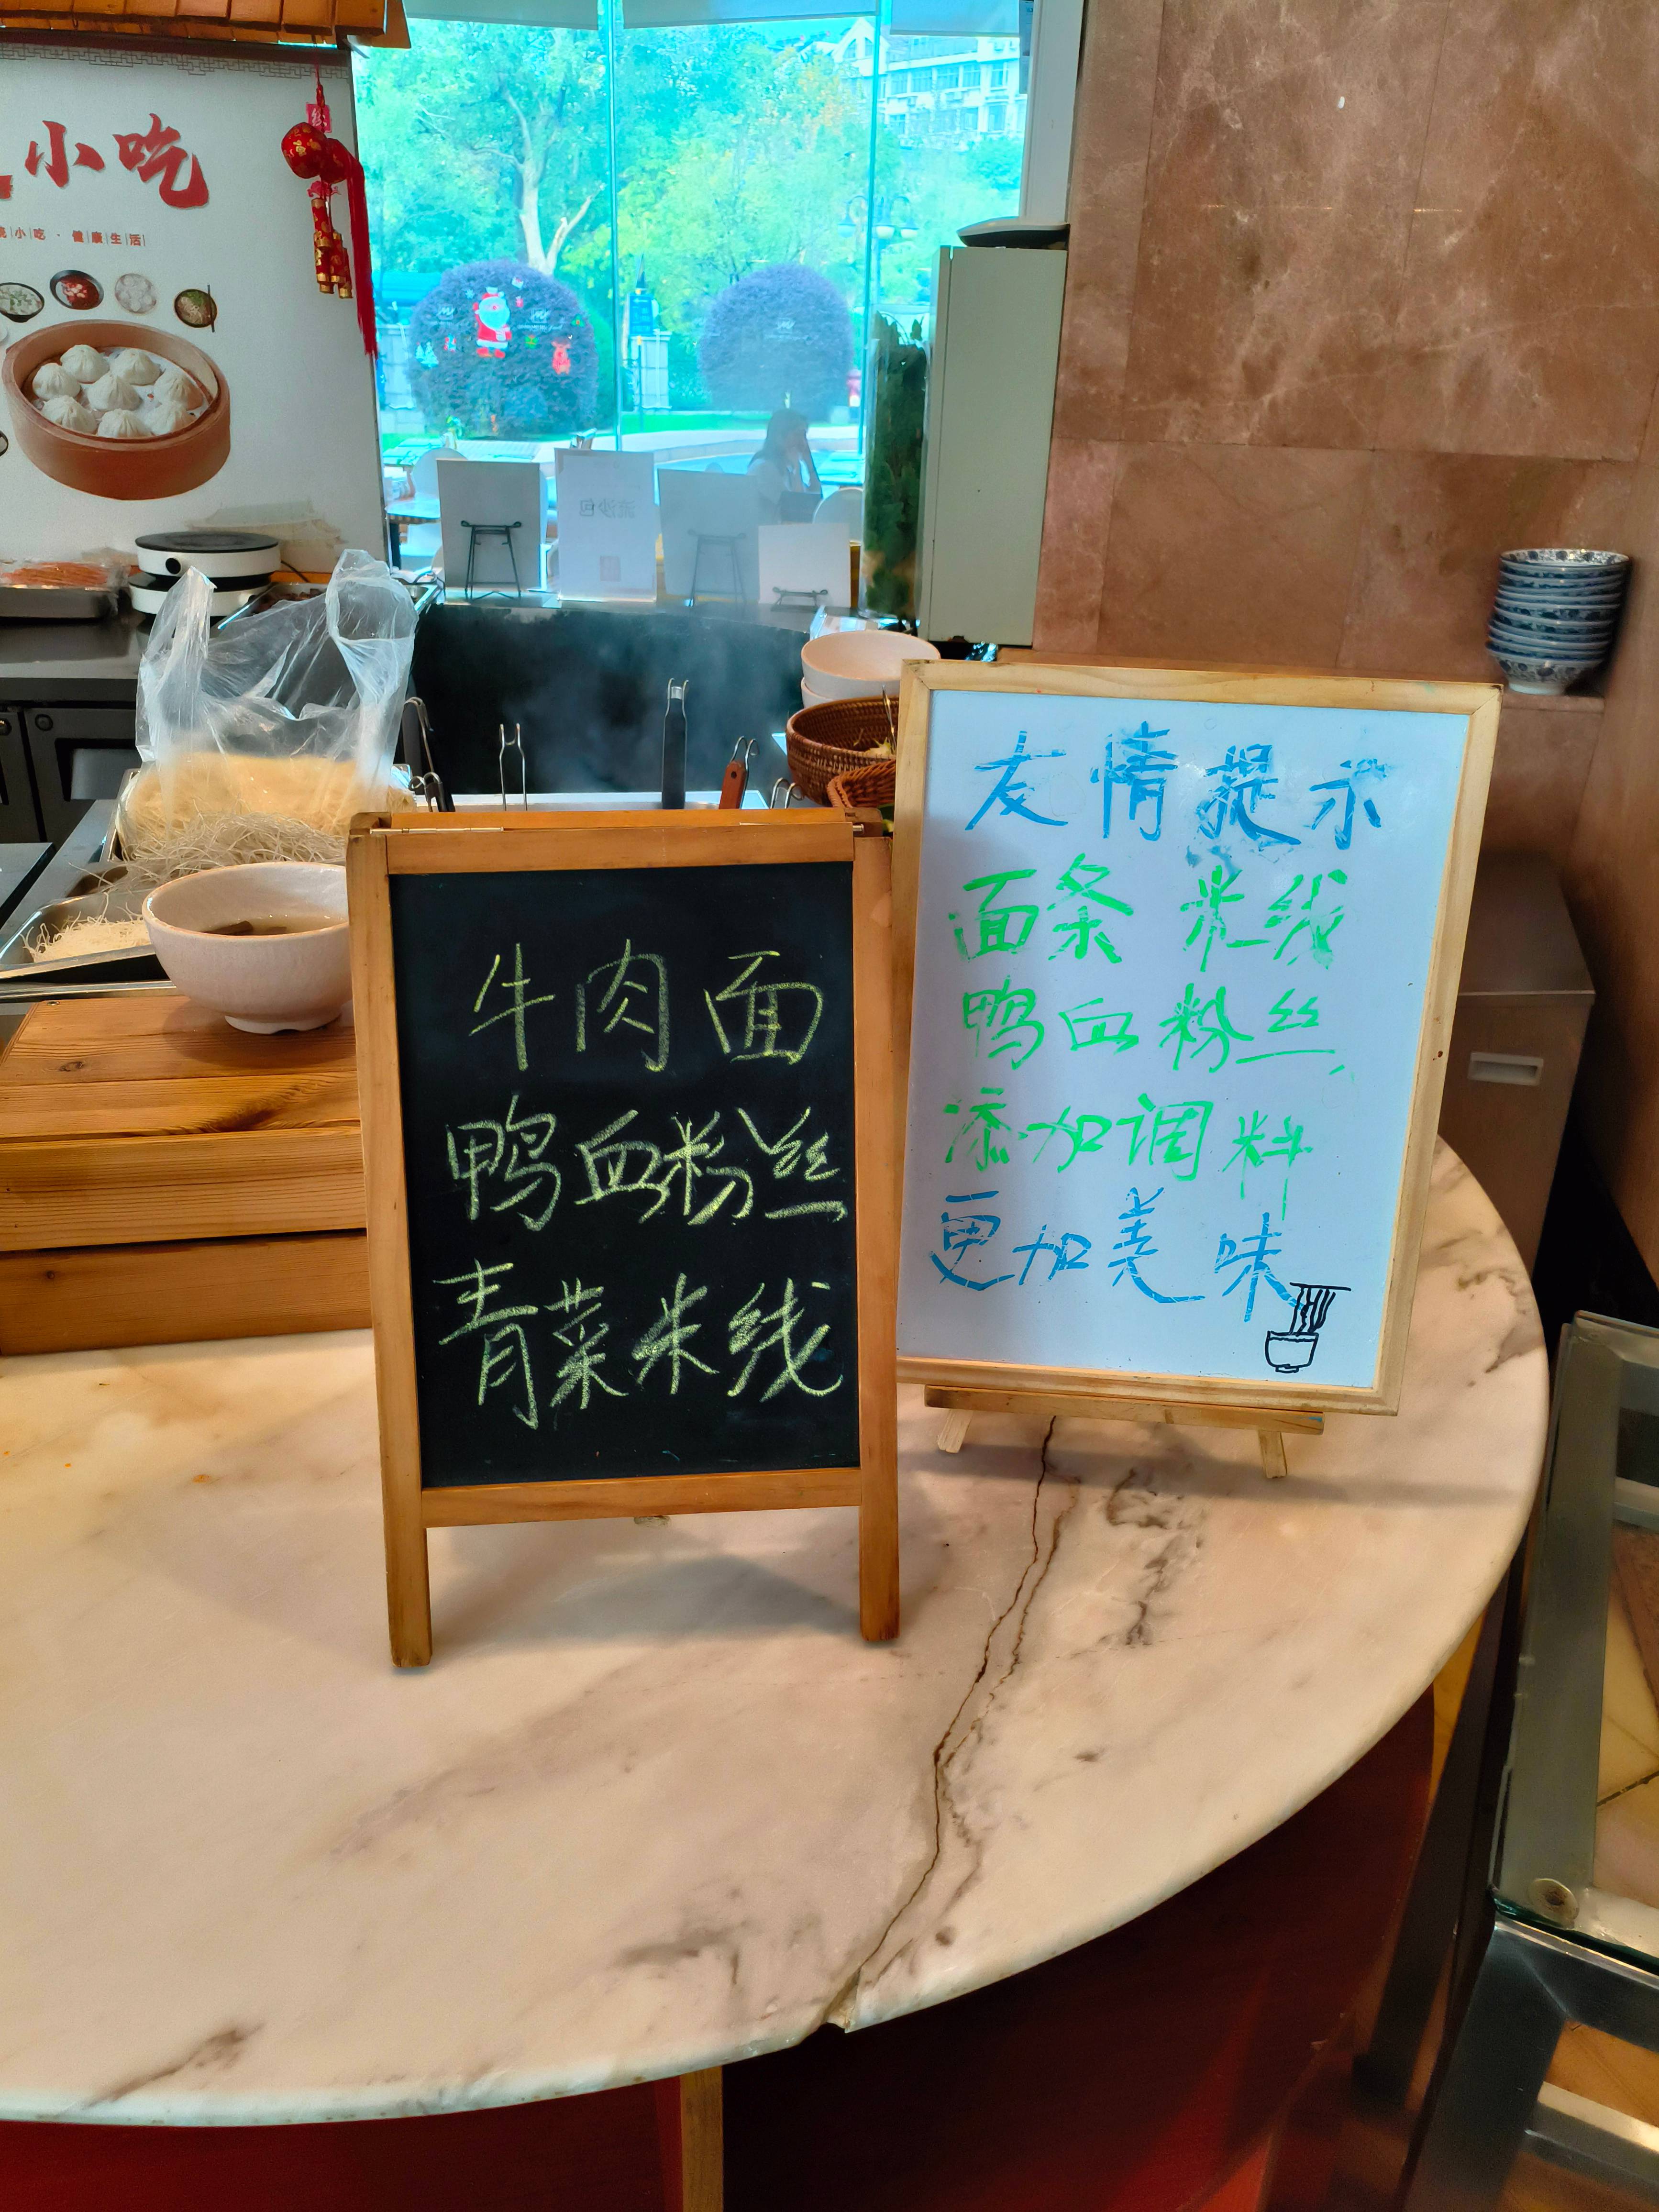 小吃
小吃·健康生活
牛肉面
鸭血粉丝
青菜米线
友情提示
面条 米线
鸭血粉丝
添加调料
更加美味